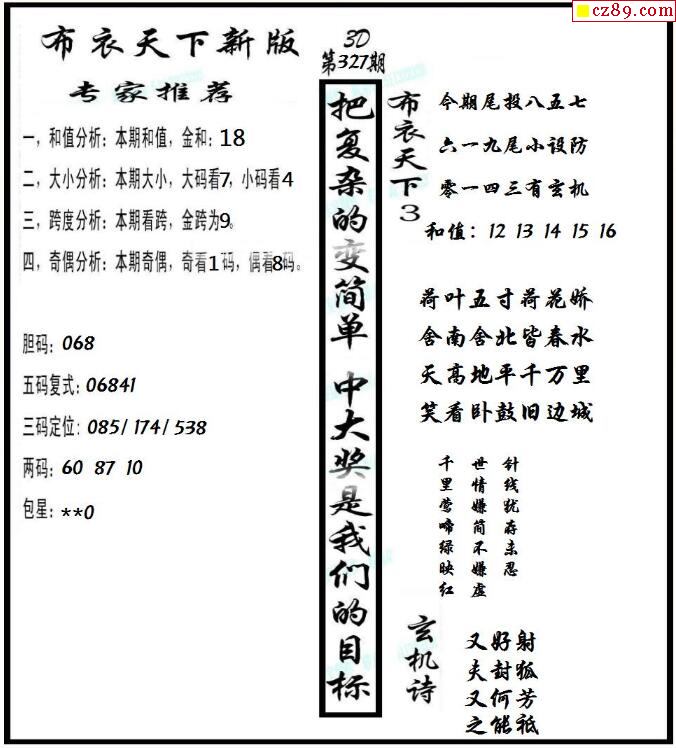 cz89.com
布衣天下新版
专家推荐
一，和值分析：本期和值，金和：18
二，大小分析：本期大小，大码看7，小码看4
三，跨度分析：本期看跨，金跨为9。
四，奇偶分析：本期奇偶，奇看1码，偶看8码。
胆码：068
五码复式：06841
三码定位：085/174/538
两码：60 87 10
包星：**0
3D
第327期
把复杂的变简单 中大奖是我们的目标
布衣天下3
今期尾投八五七
六一九尾小设防
零一四三有玄机
和值：12 13 14 15 16
荷叶五寸荷花娇
舍南舍北皆春水
天高地平千万里
笑看卧鼓旧边城
千里莺啼绿映红
世情嫌简不嫌虚
针线犹存未忍
玄机诗
又好射
夫封狐
又何芳
之能祗